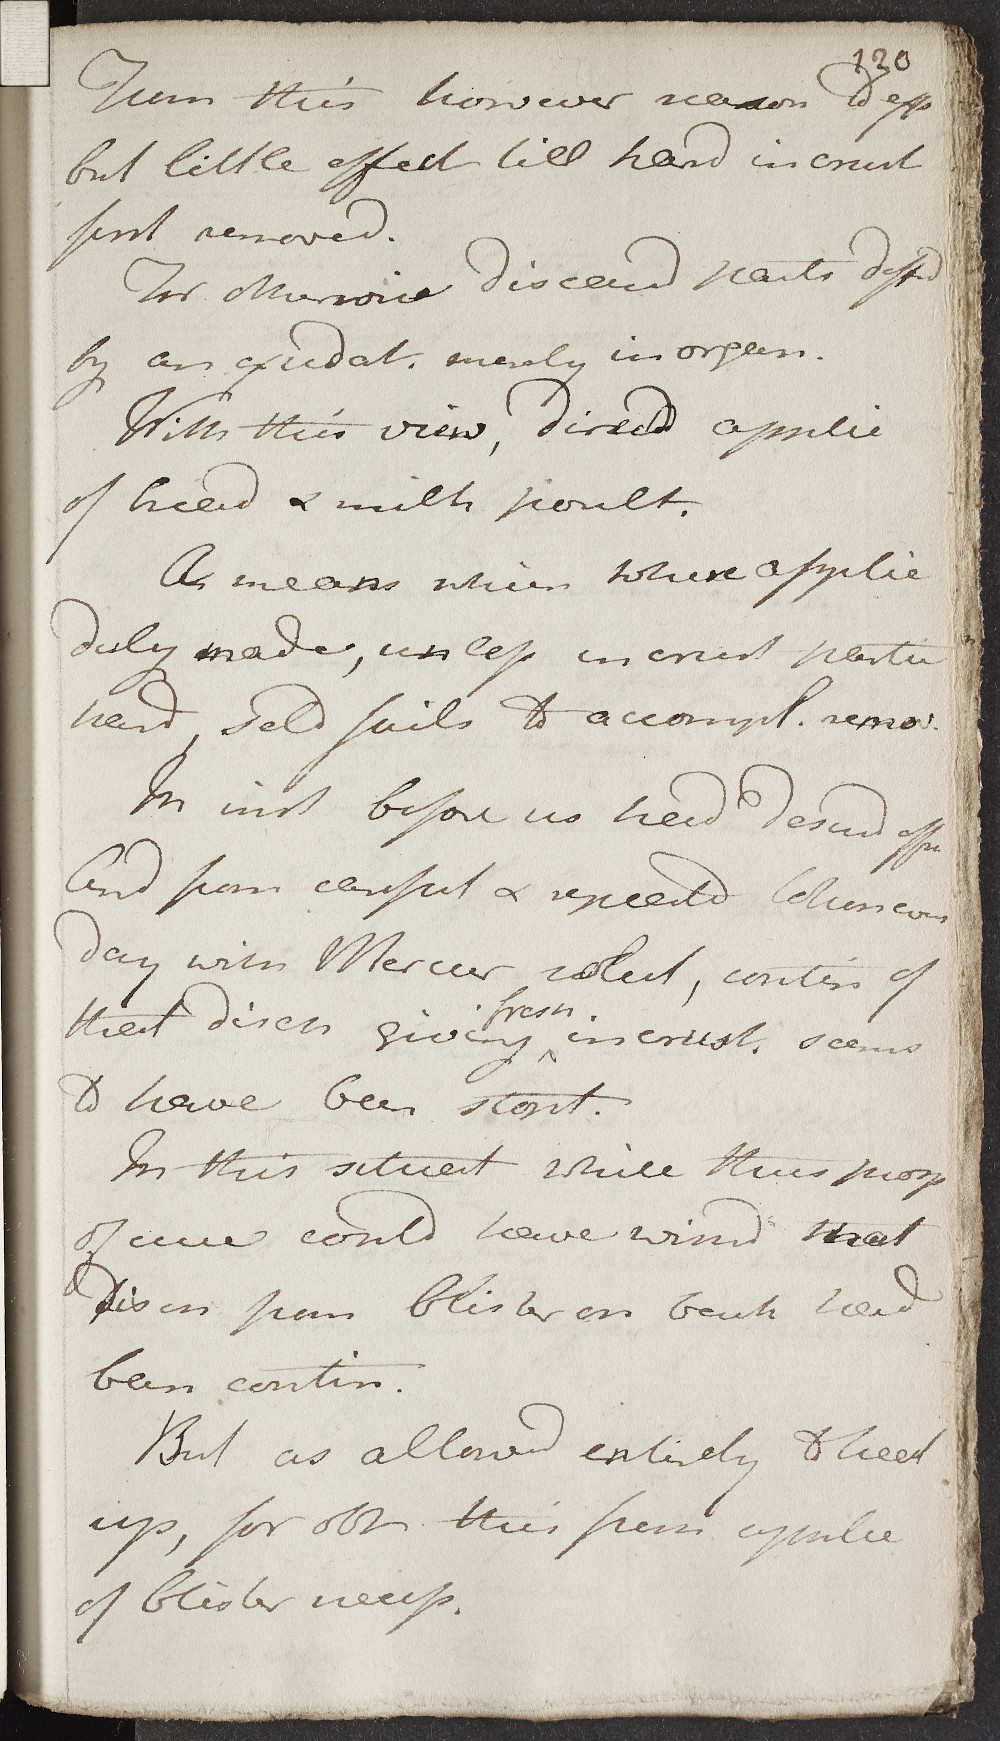 130
From this however reason to exp
but little effect till hard incrust
first removed.
For otherwise diseased parts defend
by an exudat. merely inorgan.
With this view, directd applic
of bread & milk poult.
As means which where applic
duly made, unless incrust partic
hard, seld fails to accompl. remov.
In inst before us had desired effe
And from careful & repeatd
day with Mercur solut, contin of
that disch giving fresh incrust. seems
to have been stopt.
In this situat while thus prog
of cure could have wishd that
disch from blister on back had
been contin.
But as allowed entirely to heal
up, for obt this fresh applic
of blister necess.